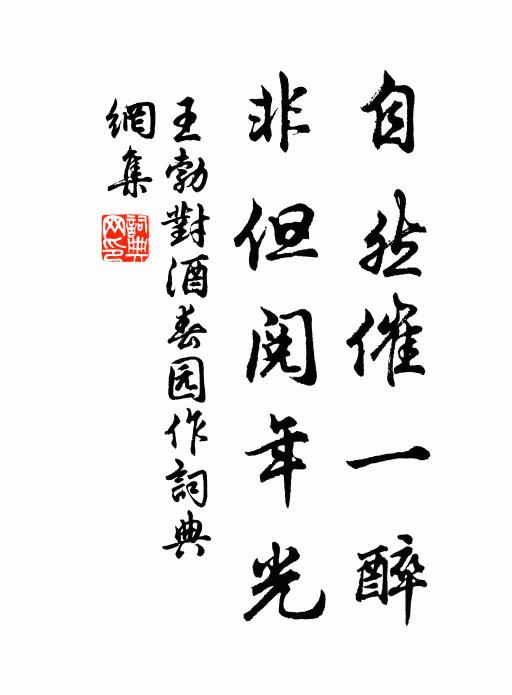 自然催一醉
非但阅年光
王勃對酒春园作詞典
網集
詞典
网印